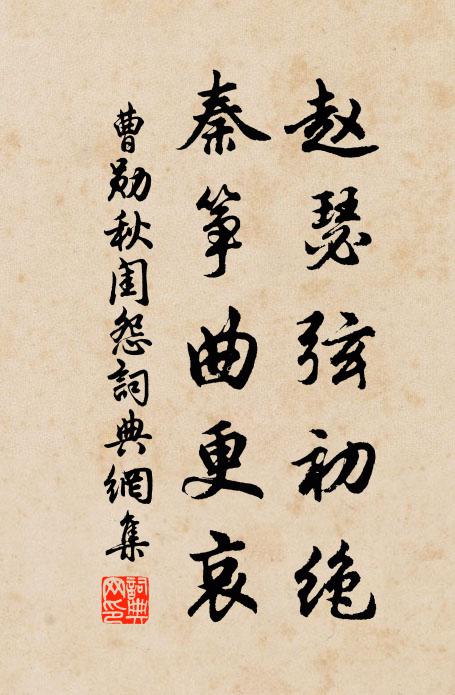 赵瑟弦初绝
秦筝曲更哀
曹勋秋闺怨詞典網集
詞典
网印